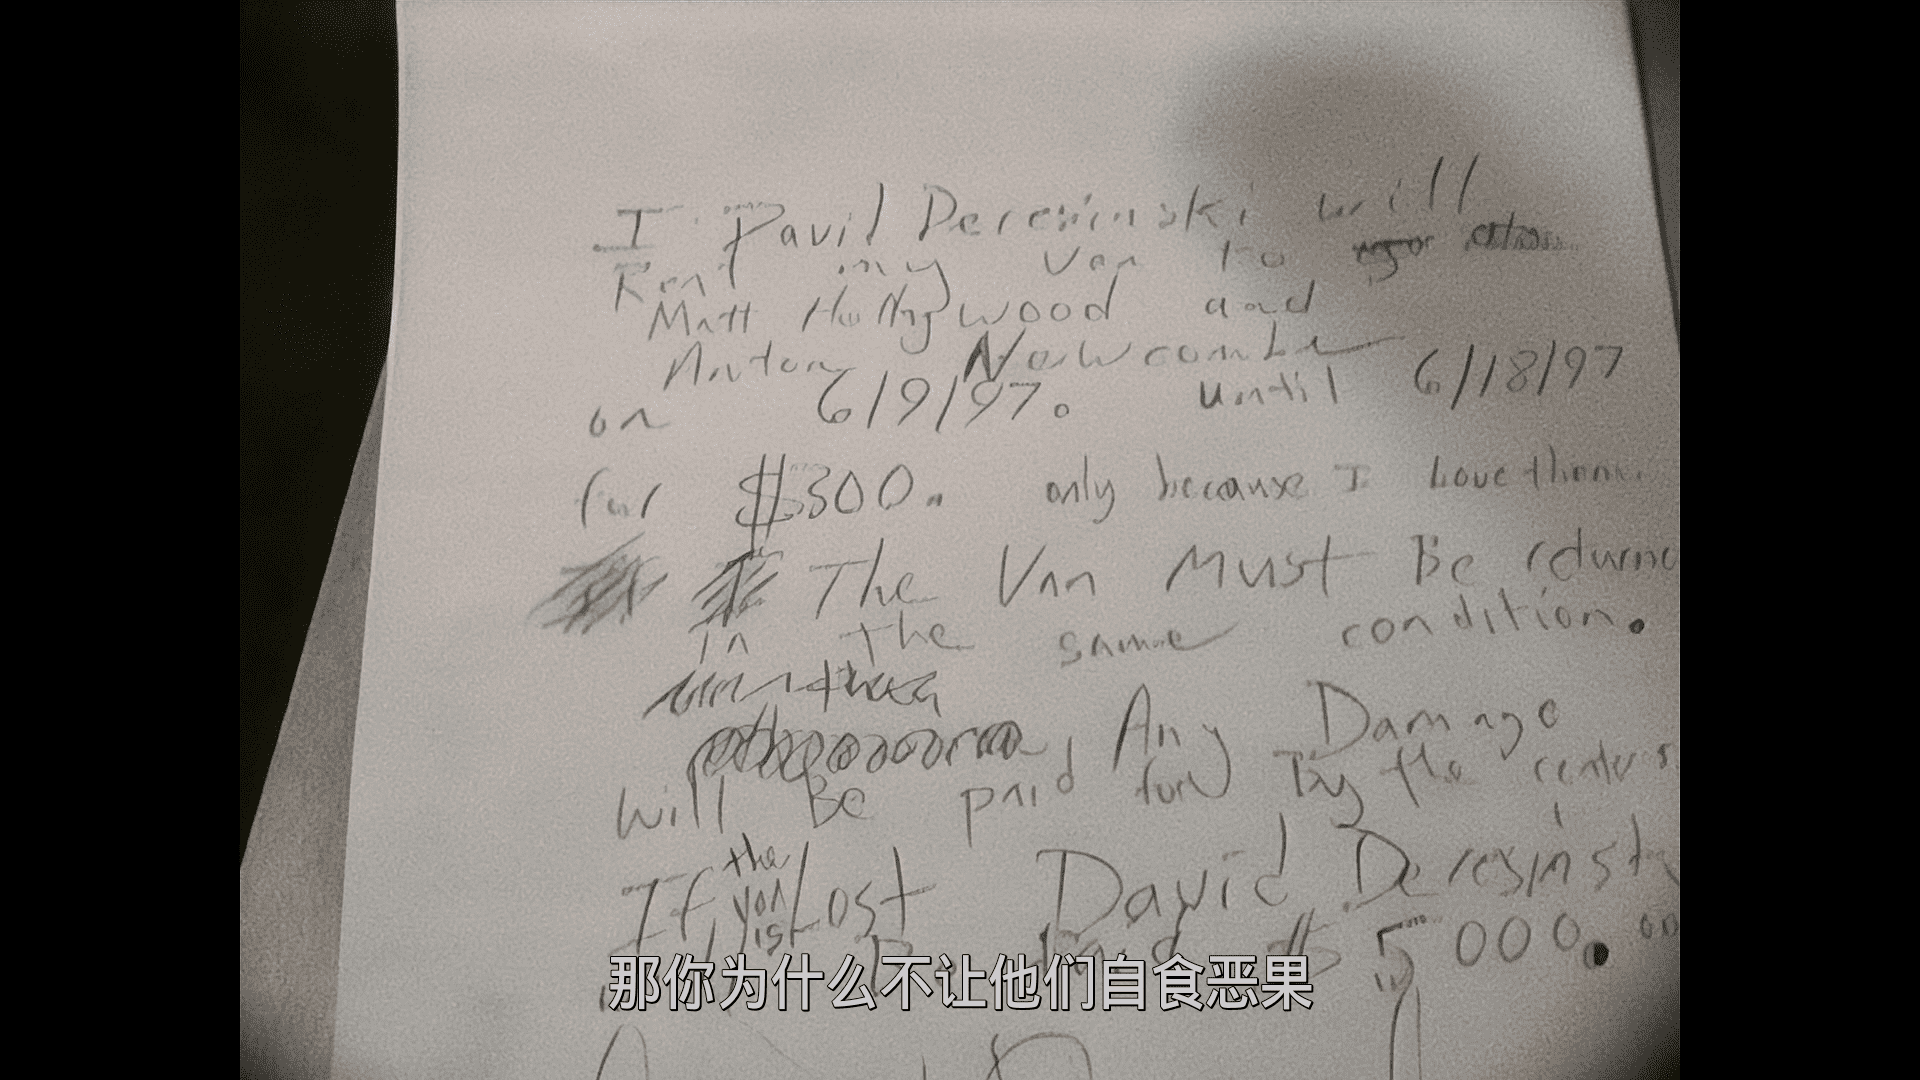 I David Deresinski will
Rent my van to
Matt Hollywood and
Anton Newcombe
on 6/9/97. until 6/18/97
for $300. only because I Love them.
The Van Must Be returne
in the same condition.
Any Damage
will Be paid for By the renters
If the van is Lost David Deresinski
$5000. on
那你为什么不让他们自食恶果